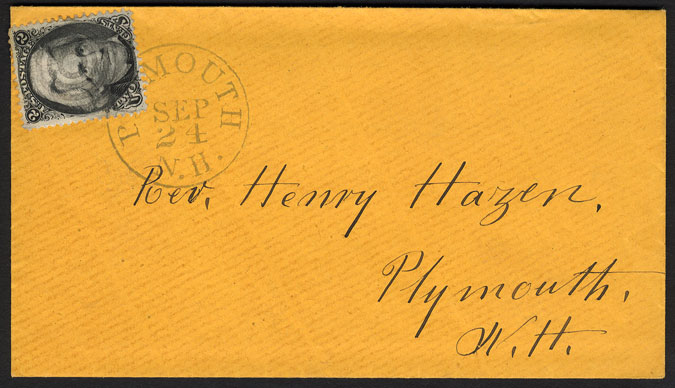 U.S. POSTAGE
PLYMOUTH
SEP
24
N.H.
Rev. Henry Hazen,
Plymouth,
N.H.